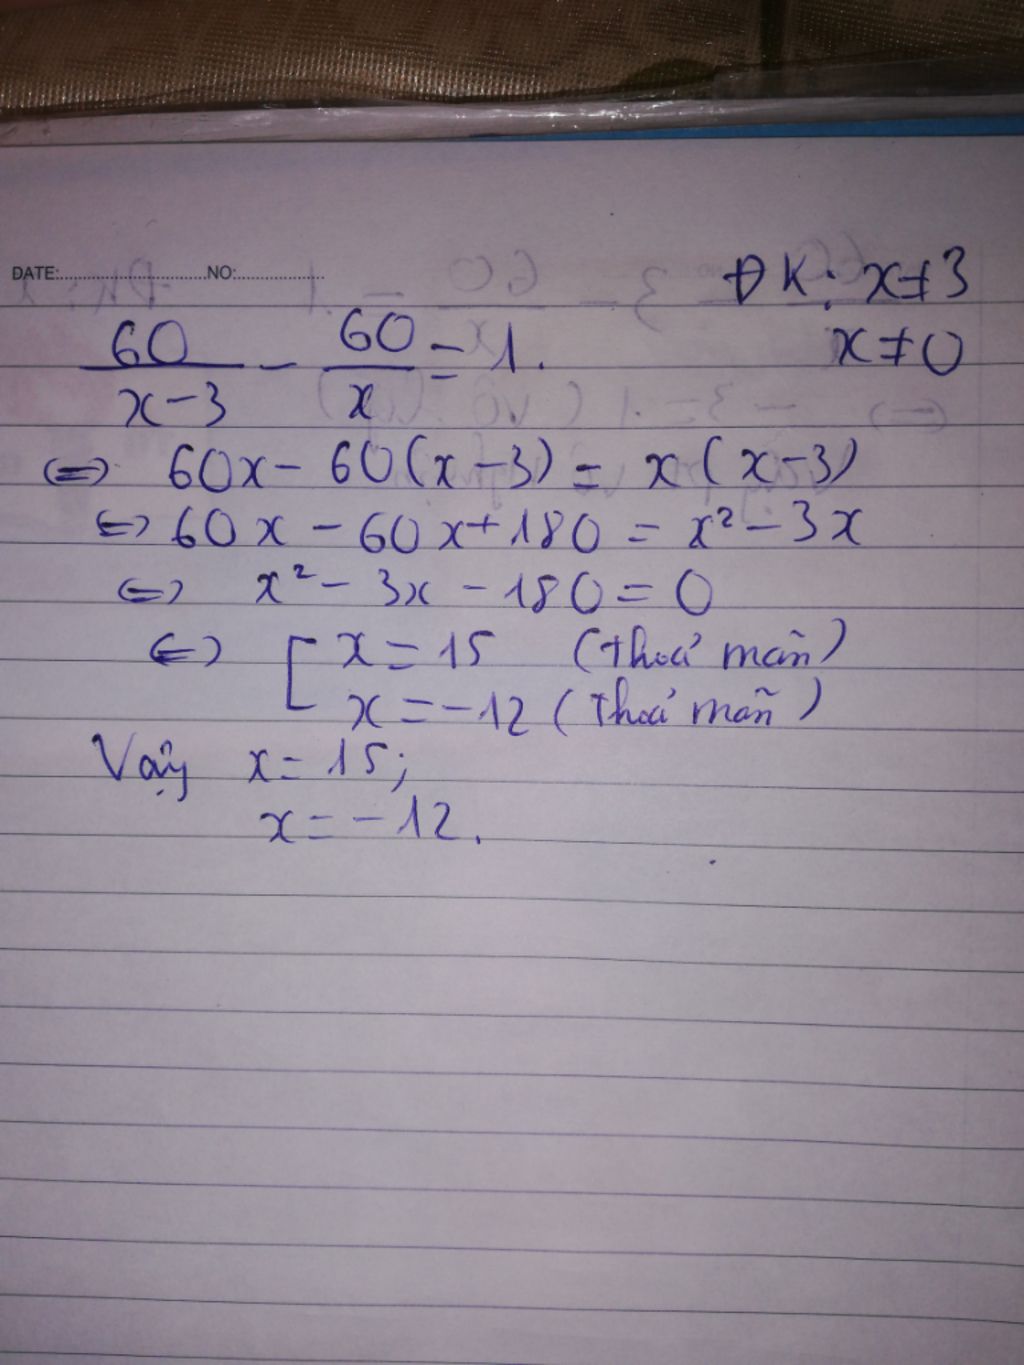 DATE:............................NO:...................
ĐK: x≠3
x≠0
60/(x-3) - 60/x = 1.
<=> 60x - 60(x-3) = x(x-3)
<=> 60x - 60x + 180 = x² - 3x
<=> x² - 3x - 180 = 0
<=> [ x = 15 (thoả mãn)
x = -12 (thoả mãn)
Vậy x = 15;
x = -12.